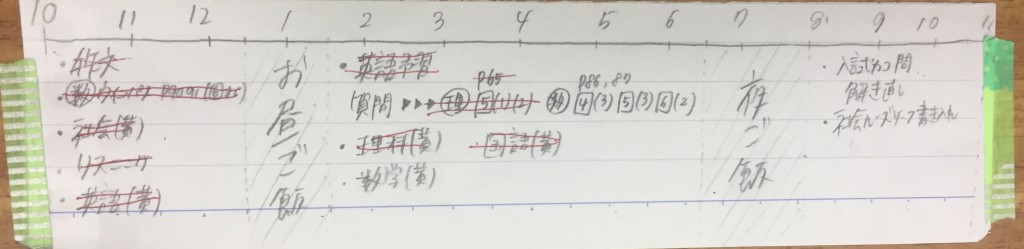 10 11 12 1 2 3 4 5 6 7 8 9 10 11
・作文
・社会(黄)
・リスニング
・英語(黄)
お昼ご飯
・英語予習
P65
P86,87
質問 ▶▶▶ 理 5(1)(2) 数 4(3) 5(3) 6(2)
・理科(黄) ・国語(黄)
・数学(黄)
夜ご飯
・入試カコ問
解き直し
・社会ルーズリーフ書き入れ